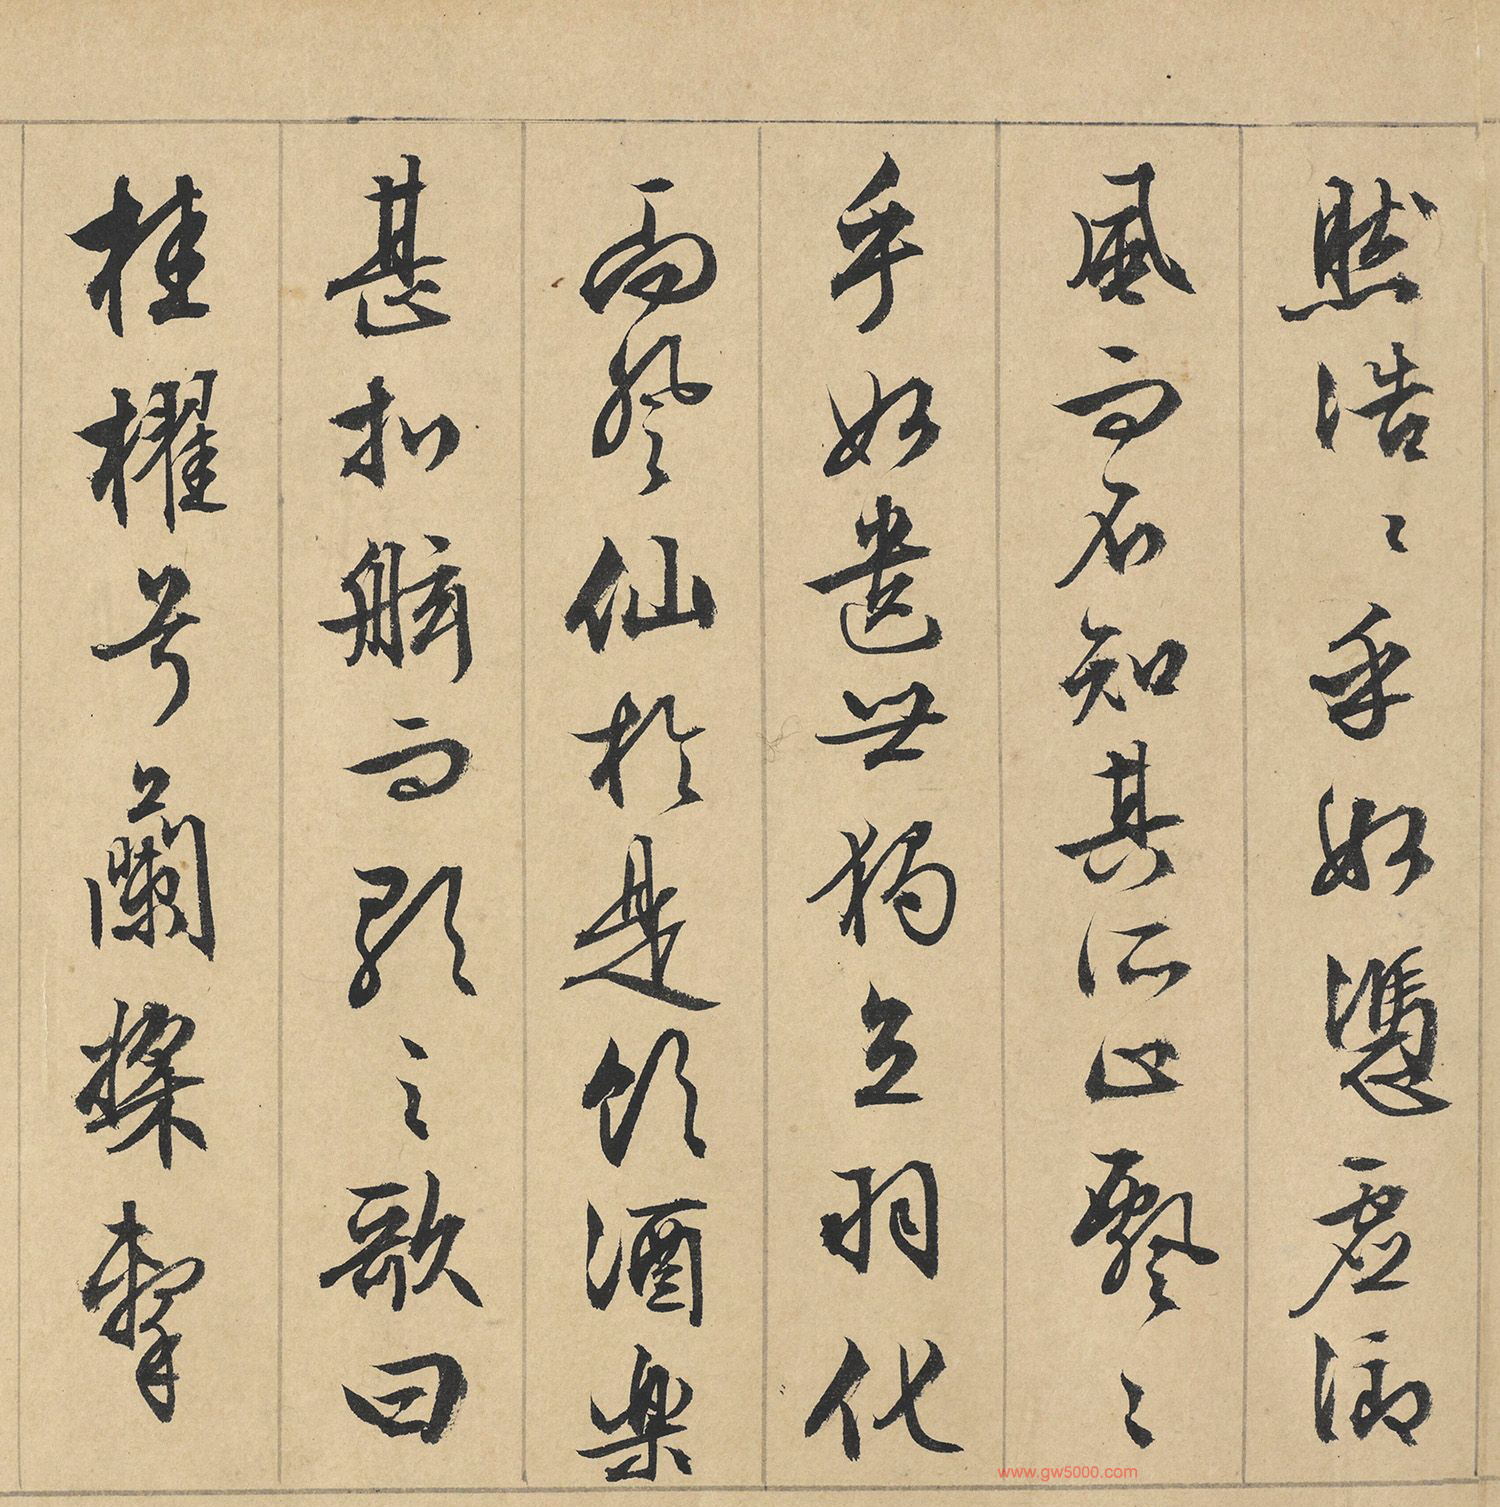 然浩〻乎如憑虛御
風而不知其所止飄〻
乎如遺世獨立羽化
而登仙於是飲酒樂
甚扣舷而歌之歌曰
桂櫂兮蘭槳擊
www.gw5000.com